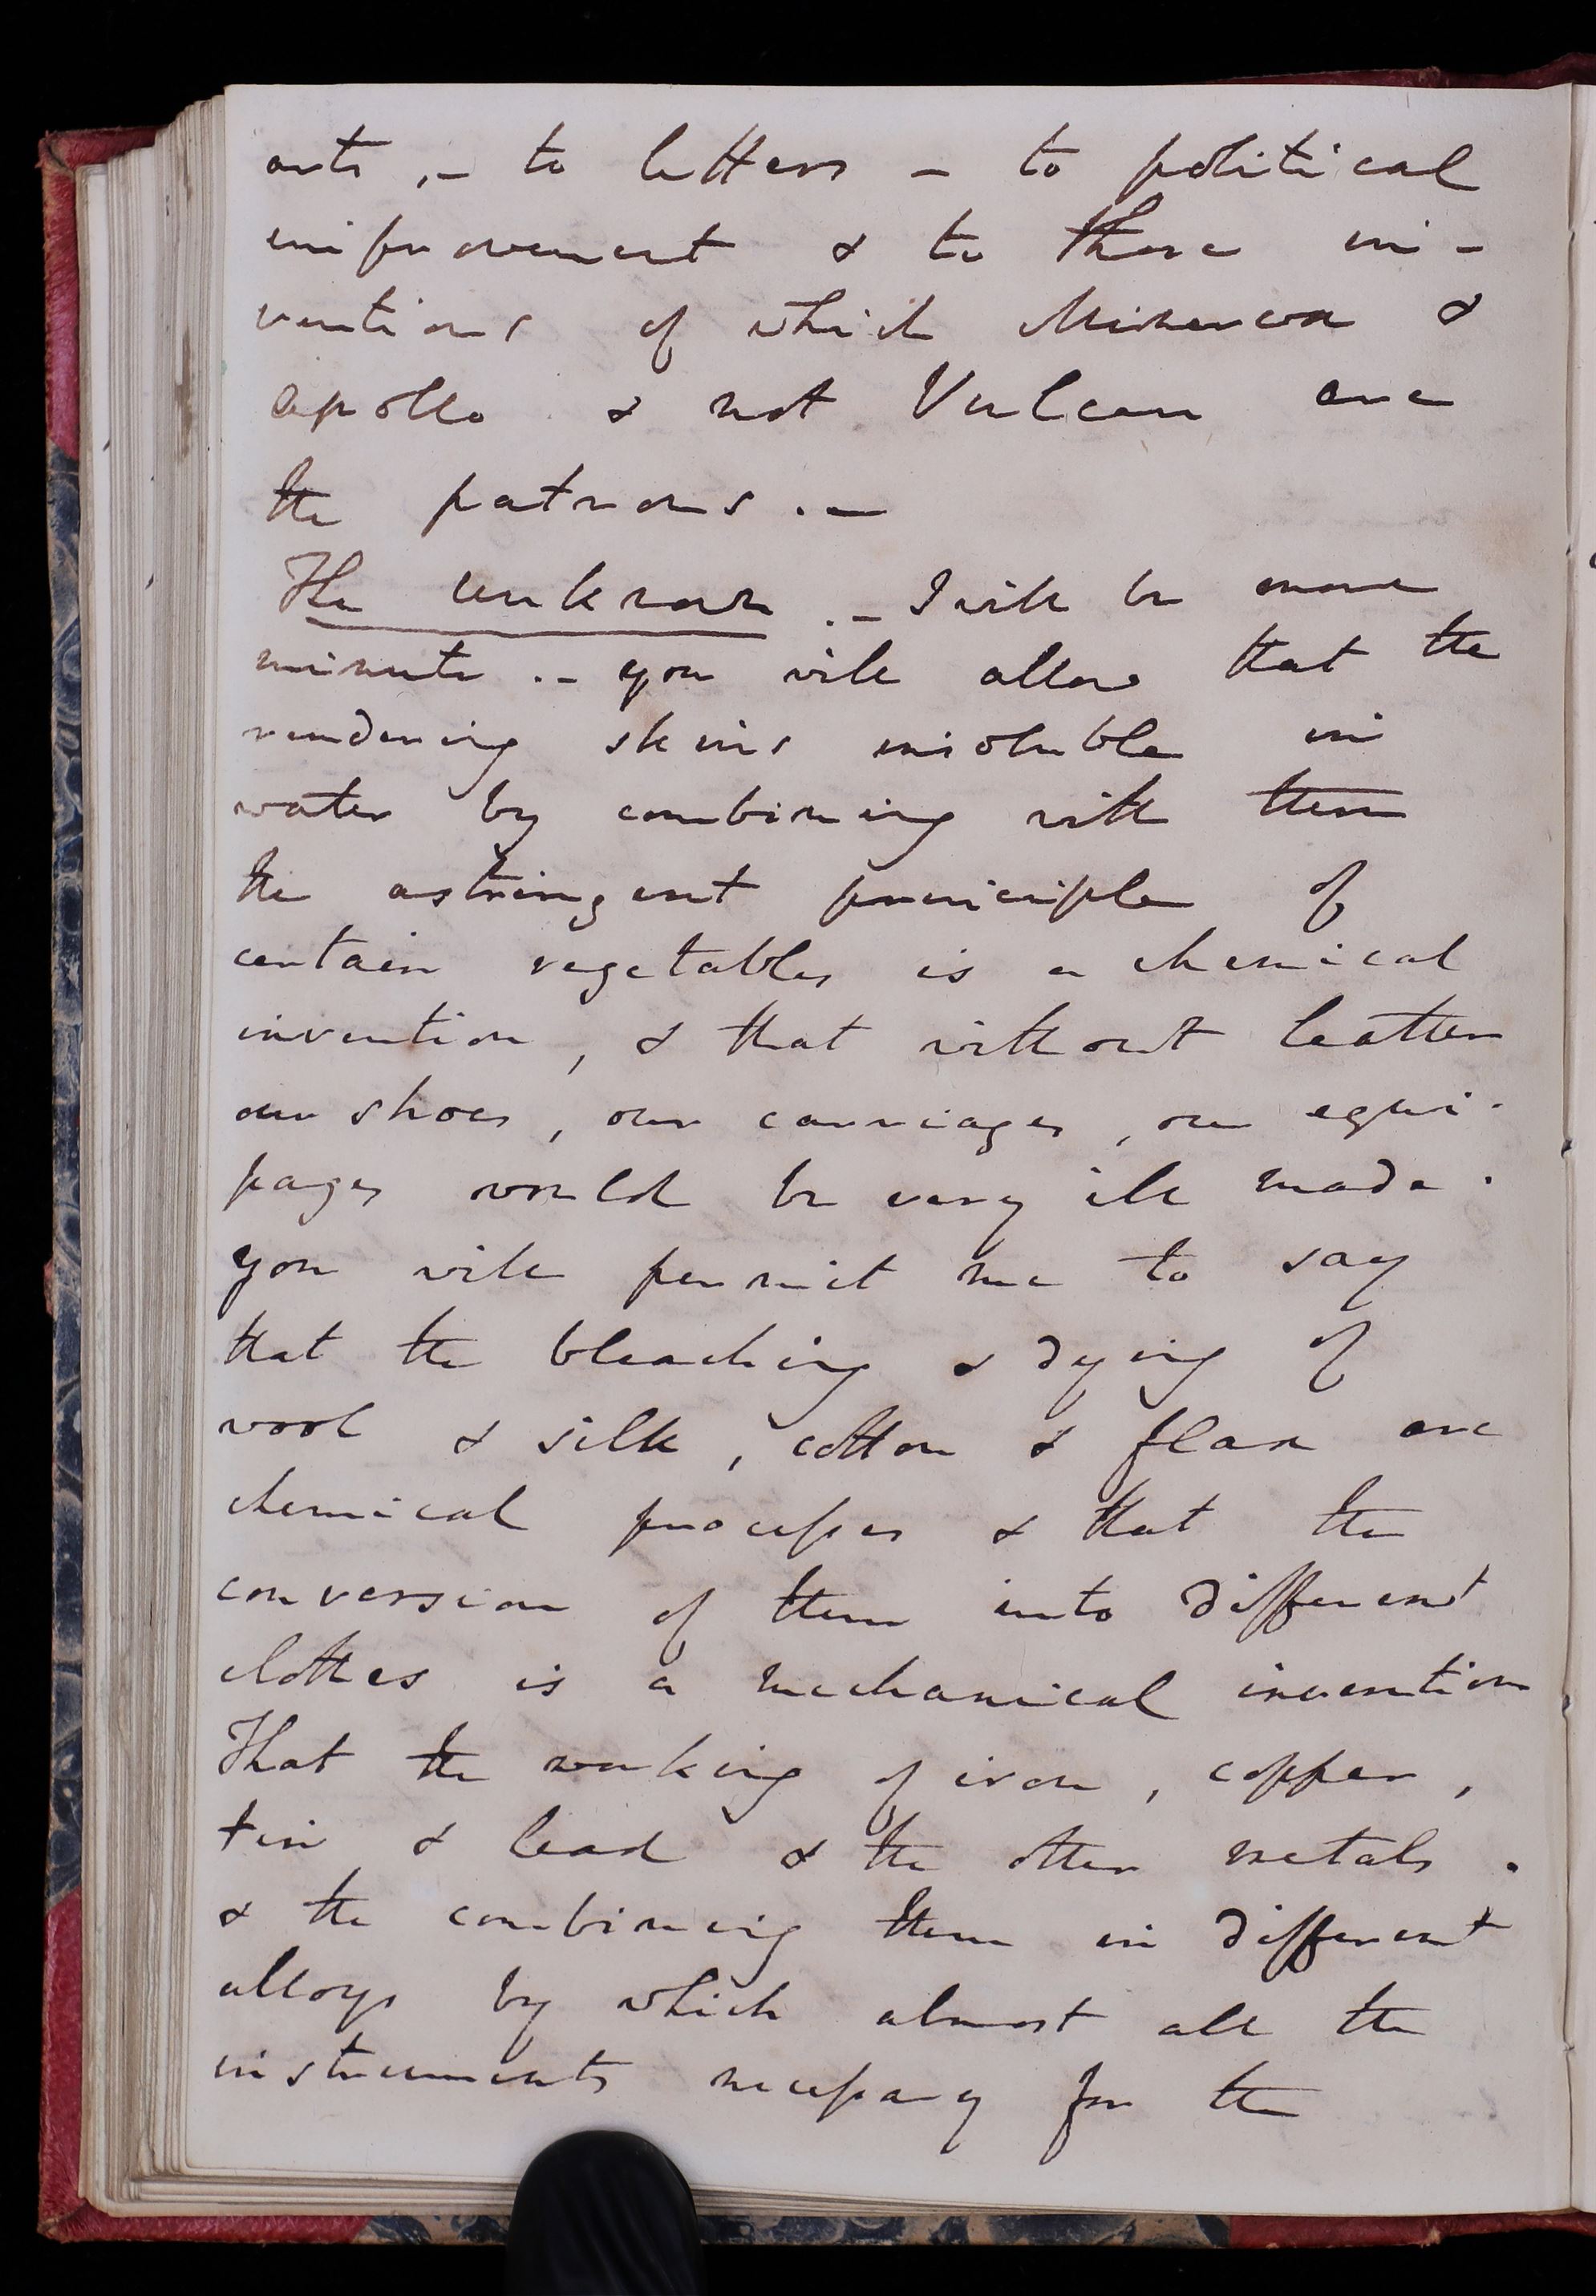 arts, – to letters – to political
improvement & to those in-
ventions of which Minerva &
Apollo & not Vulcan are
the patrons. –
The Unknown. – I will be more
minute. – you will allow that the
rendering skins insoluble in
water by combining with them
the astringent principle of
certain vegetables is a chemical
invention, & that without leather
our shoes, our carriages, our equi-
pages would be very ill made.
you will permit me to say
that the bleaching & dying of
wool & silk, cotton & flax are
chemical processes & that the
conversion of them into different
clothes is a mechanical invention
That the working of iron, copper,
tin & lead & the other metals.
& the combining them in different
alloys by which almost all the
instruments necessary for the